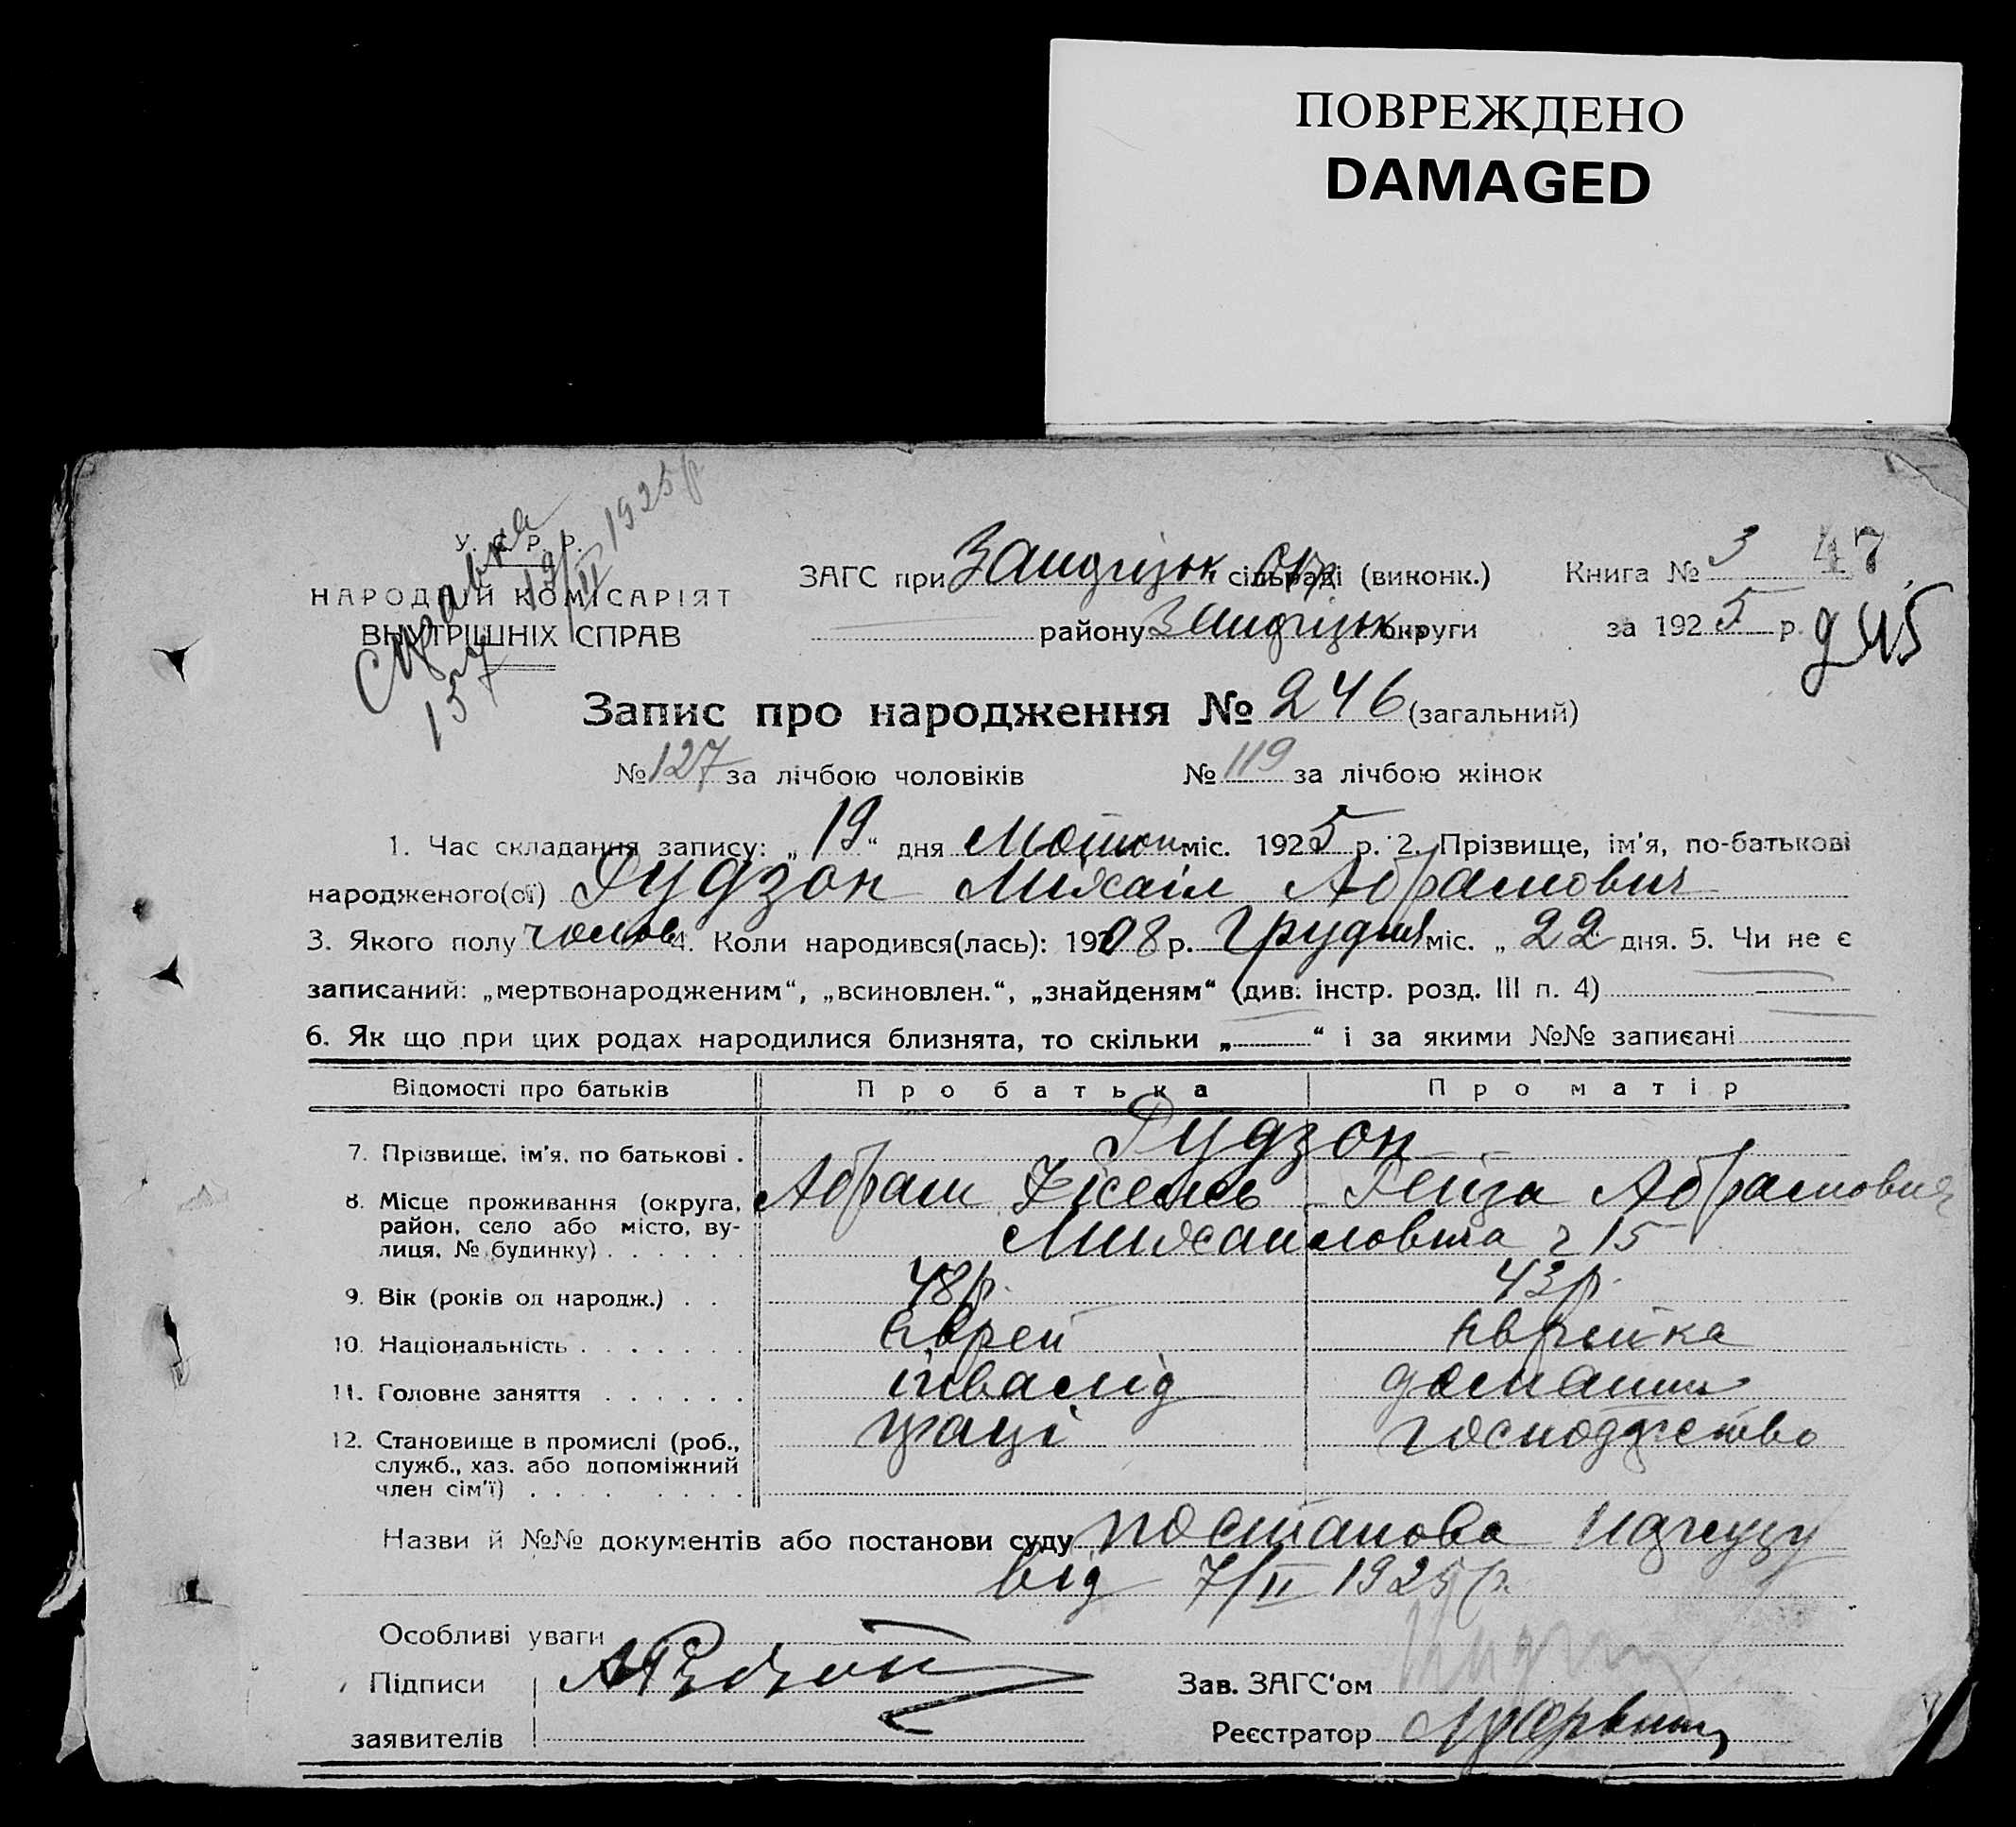 ПОВРЕЖДЕНО
DAMAGED
Справка
157
19/II 1925 р
У. С. Р. Р.
НАРОДНІЙ КОМІСАРІЯТ
ВНУТРІШНІХ СПРАВ
ЗАГС при сільраді (виконк.)
району округи
Книга № 3
47
за 1925 р.
Запис про народження № 246 (загальний)
№ 127 за лічбою чоловіків № 119 за лічбою жінок
1. Час складання запису: „19“ дня міс. 1925 р. 2. Прізвище, ім'я, по-батькові
народженого(ої) Гудзон Міхаіл Абрамович
3. Якого полу чолов 4. Коли народився(лась): 1908 р. Грудня міс. „22 дня. 5. Чи не є
записаний: „мертвонародженим“, „всиновлен.“, „знайденям“ (див. інстр. розд. III п. 4)
6. Як що при цих родах народилися близнята, то скільки „ “ і за якими №№ записані
Відомості про батьків Про батька Про матір
7. Прізвище, ім'я, по батькові . Гудзон
8. Місце проживання (округа, район, село або місто, вулиця, № будинку) . . . . . .
Абрам Рейза Абрамовна
ч 15
9. Вік (років од народж.) . . 48 р. 43 р.
10. Національність . . . . . . . Еврей Еврейка
11. Головне заняття . . . . . . інвалід домашнє
12. Становище в промислі (роб., служб., хаз. або допоміжний член сім'ї) . . . . . . . .
праці господарство
Назви й №№ документів або постанови суду постанова Нарсуду
від 7/II 1925 р.
Особливі уваги
Підписи
заявителів
Зав. ЗАГС'ом
Реєстратор